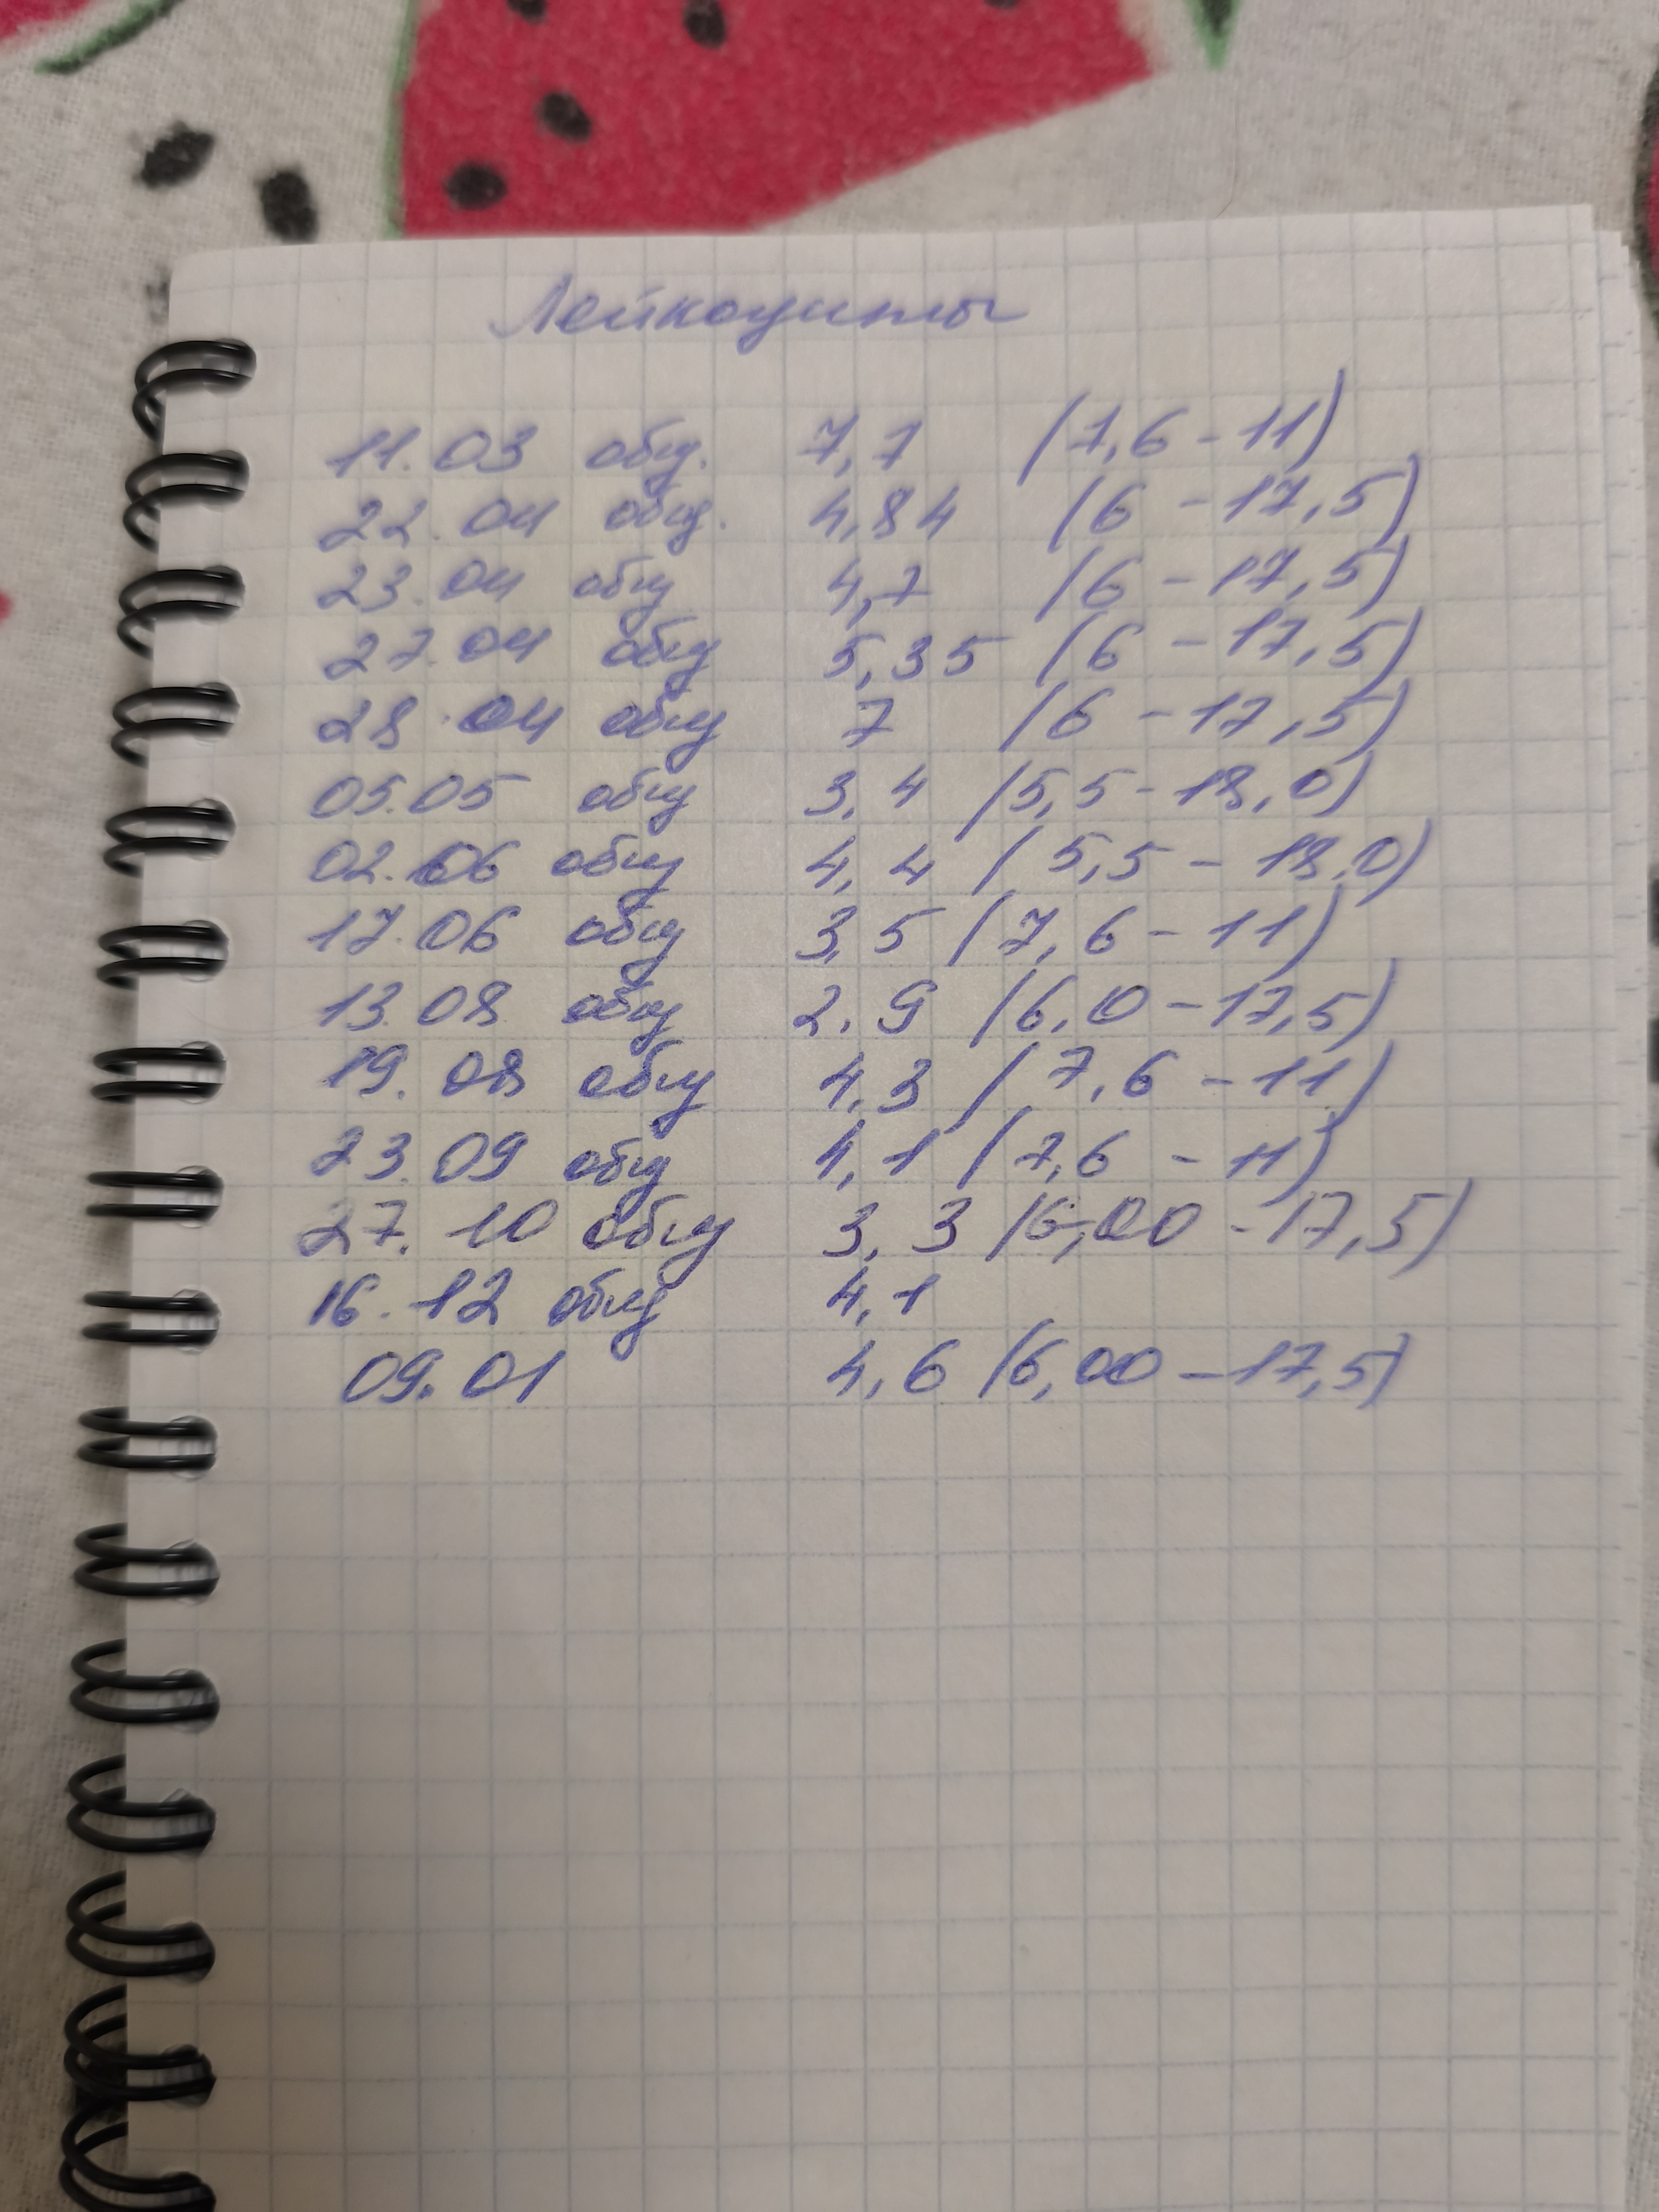 Лейкоциты
11.03 общ. 7,7 (7,6 - 11)
22.04 общ. 4,84 (6 - 17,5)
23.04 общ 4,7 (6 - 17,5)
27.04 общ 5,35 (6 - 17,5)
28.04 общ 7 (6 - 17,5)
05.05 общ 3,4 (5,5 - 18,0)
02.06 общ 4,4 (5,5 - 18,0)
17.06 общ 3,5 (7,6 - 11)
13.08 общ 2,9 (6,0 - 17,5)
19.08 общ 4,3 (7,6 - 11)
23.09 общ 4,1 (7,6 - 11)
27.10 общ 3,3 (6,00 - 17,5)
16.12 общ 4,1
09.01 4,6 (6,00 - 17,5)